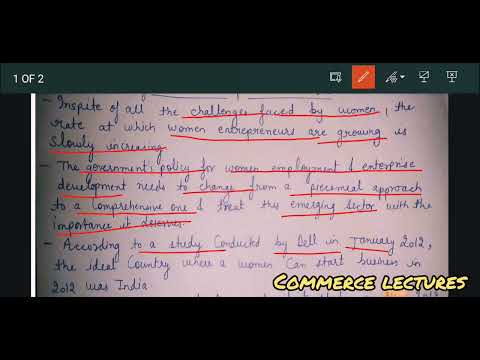 1 OF 2
- Inspite of all the challenges faced by women, the
rate at which women entrepreneurs are growing is
slowly increasing
- The government's policy for women employment & enterprise
development needs to change from a piecemeal approach
to a comprehensive one & treat this emerging sector with the
importance it deserves.
- According to a study Conducted by Dell in January 2012,
the ideal Country where a women Can start business in
2012 was India
COMMERCE LECTURES